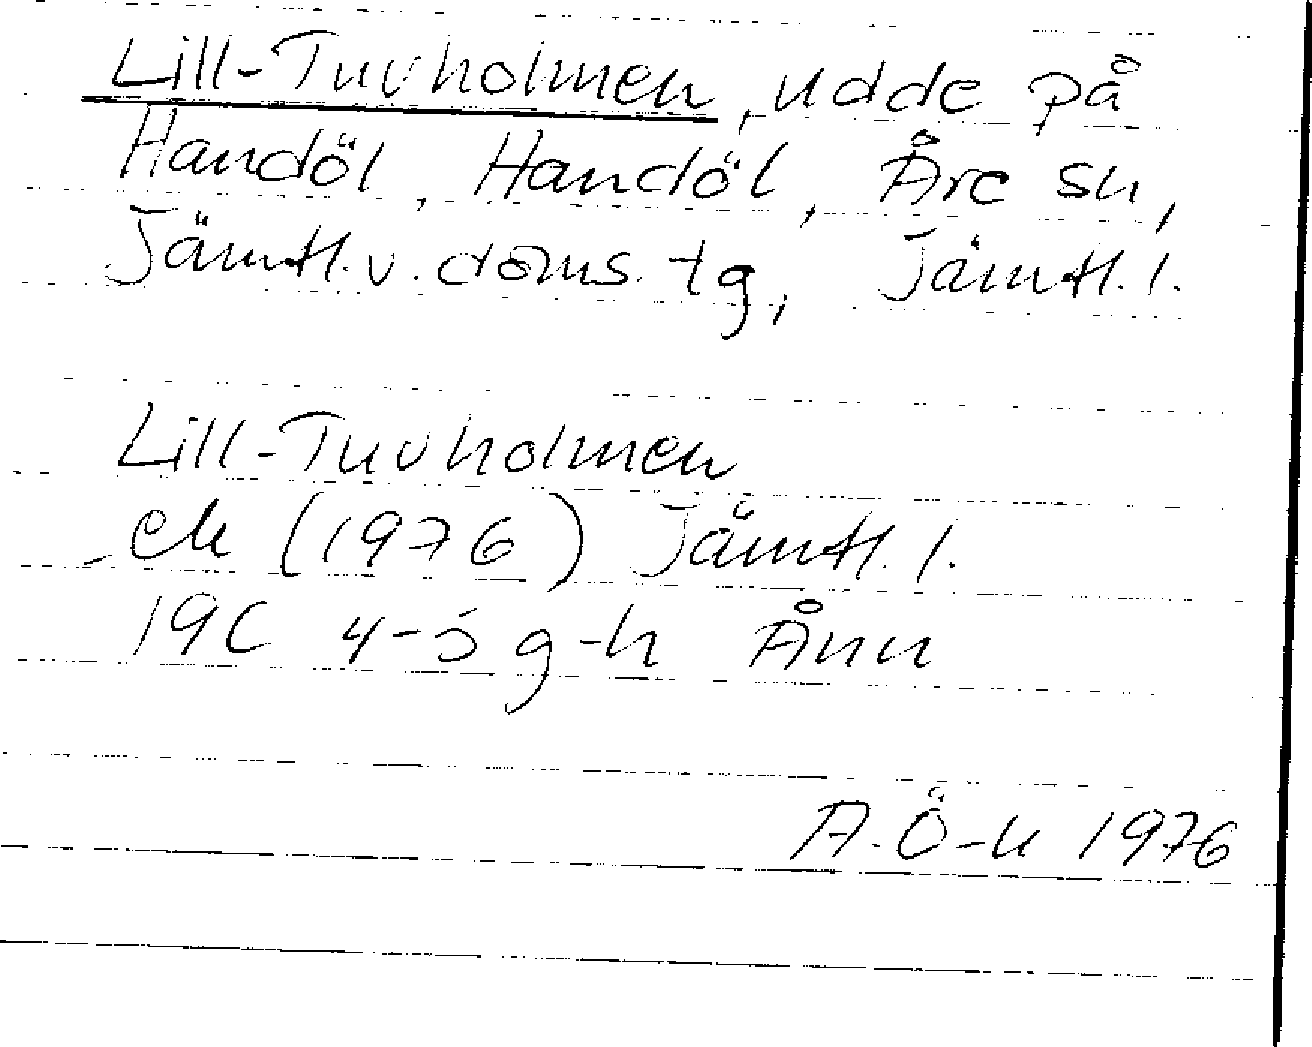 Lill-Tuvholmen, udde på
Handöl, Handöl, Åre sn,
Jämtl. v. doms. tg, Jämtl. l.
Lill-Tuvholmen
ek (1976) Jämtl. l.
19C 4-5 g-h Ånn
A. Ö-k 1976